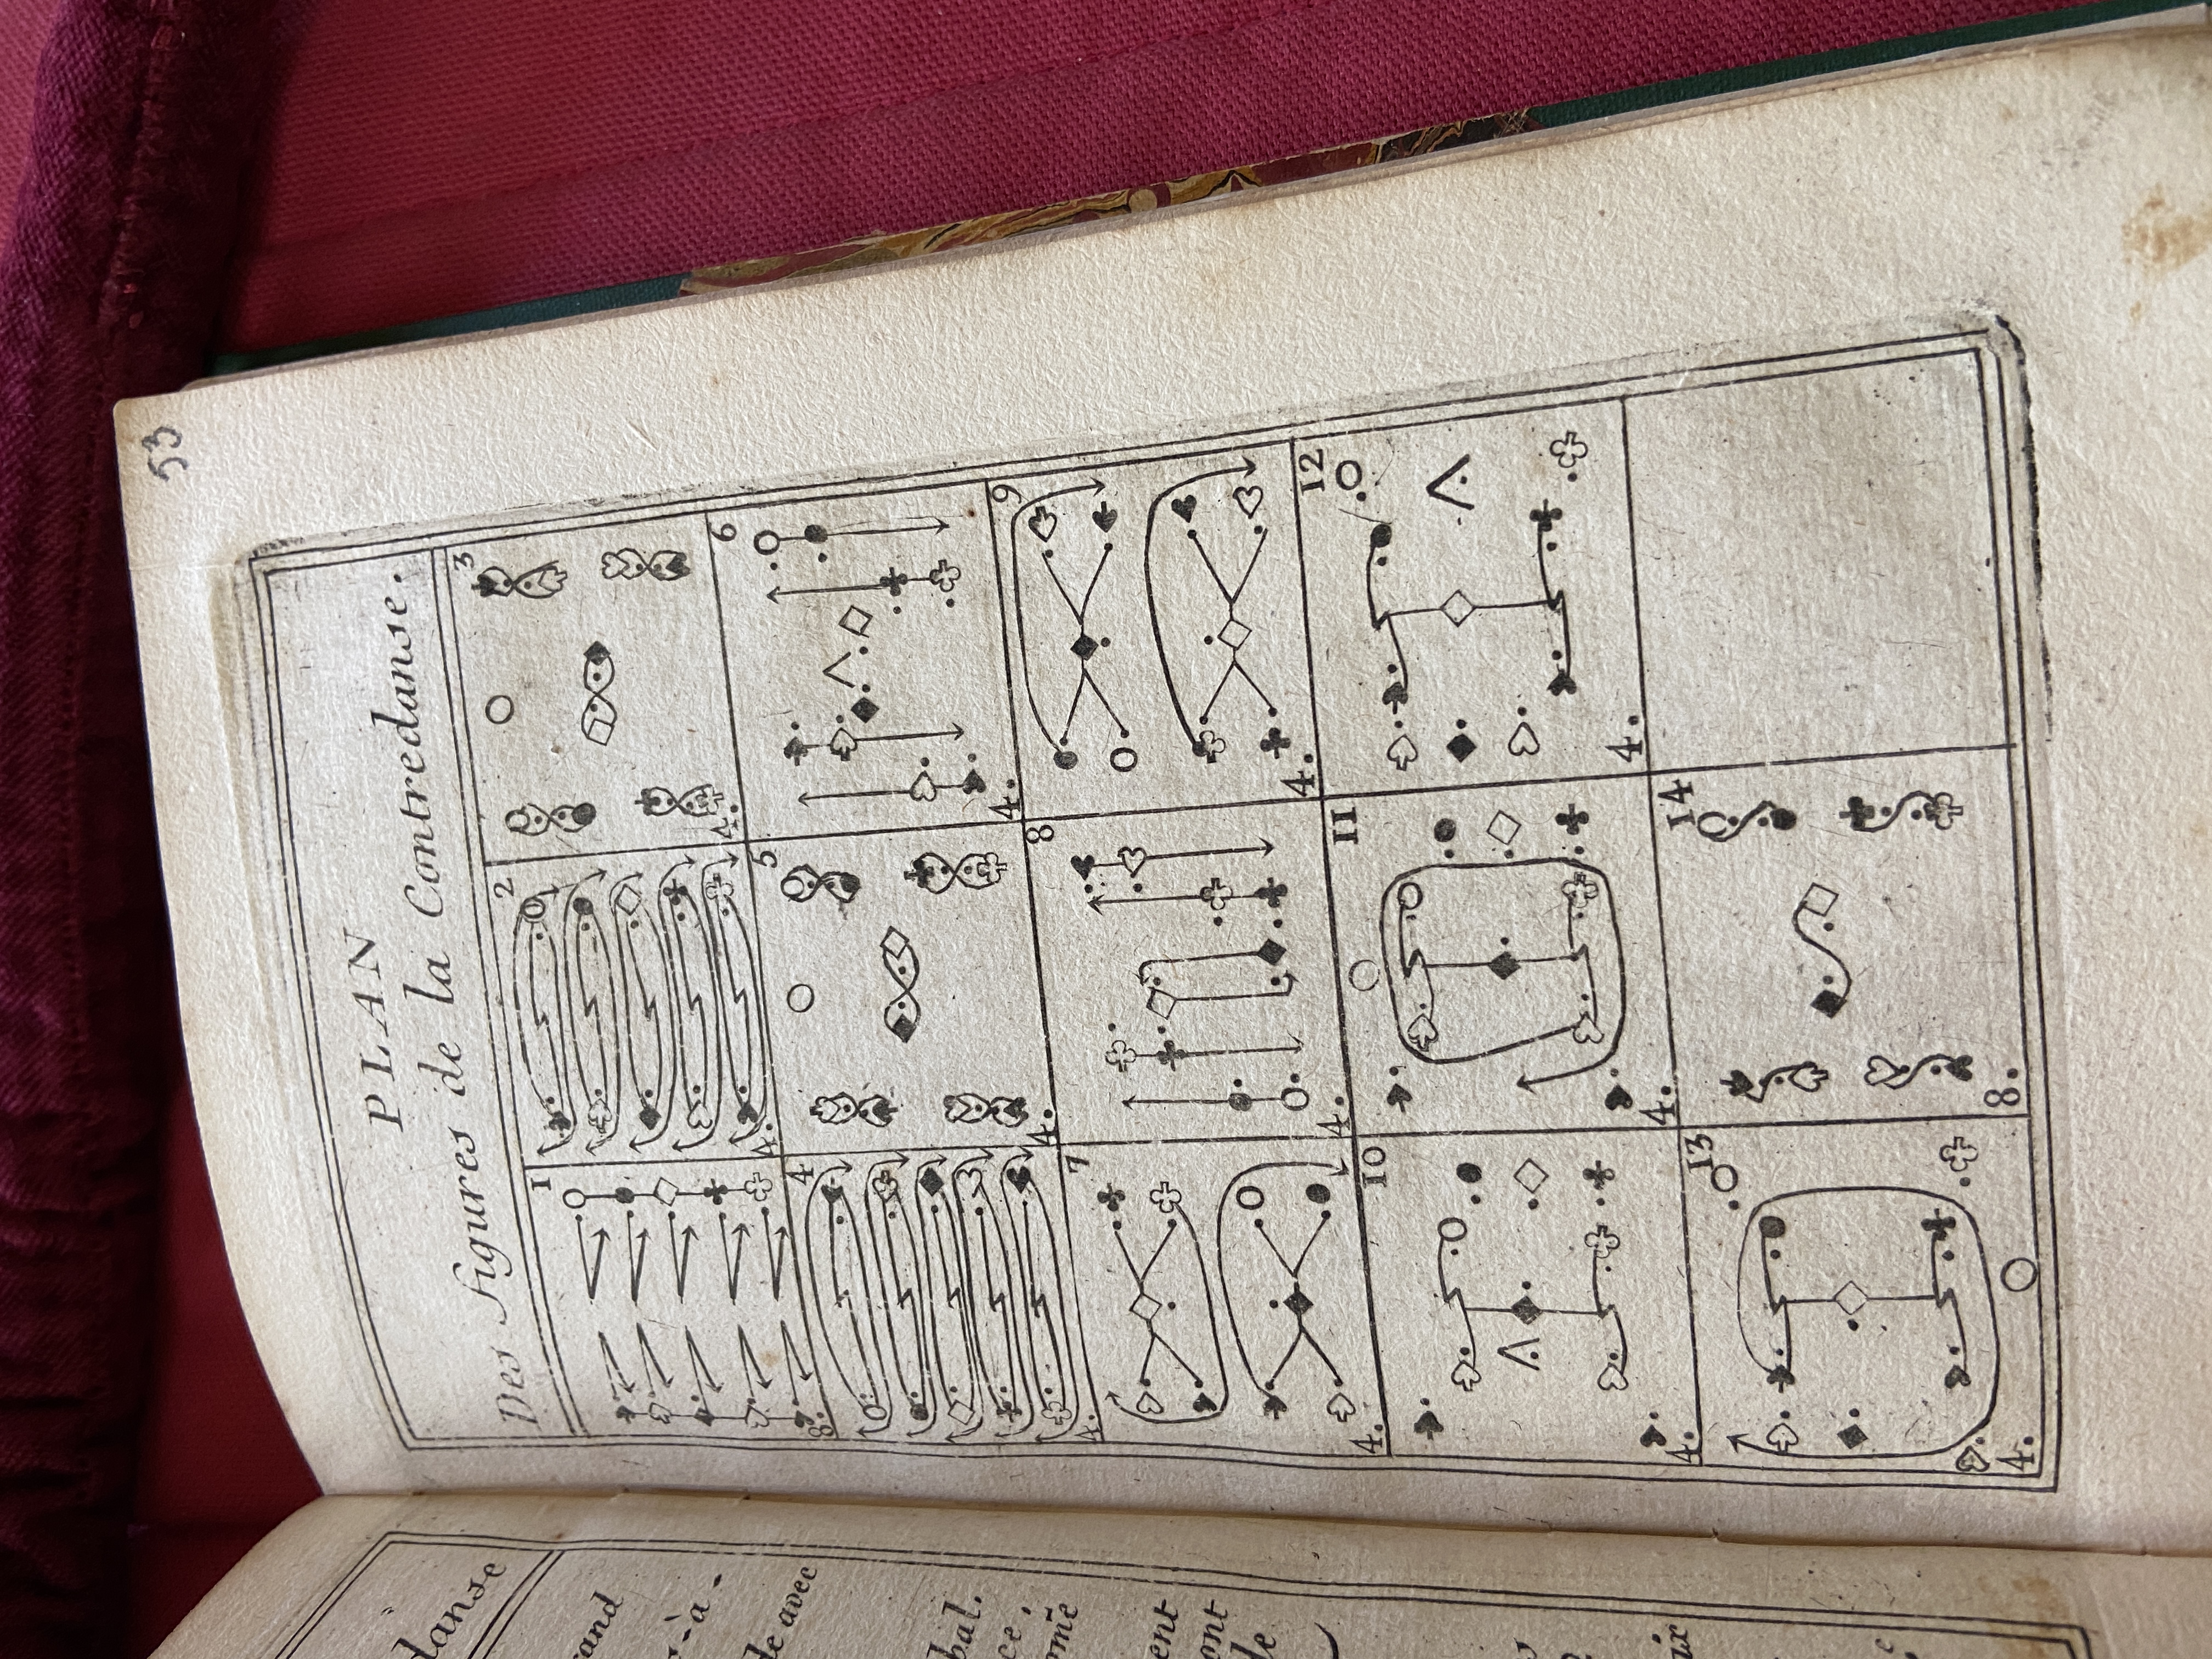 53
PLAN
Des figures de la Contredanse.
1
2
3
8.
4.
4.
4
5
6
4.
4.
4.
7
8
9
4.
4.
4.
10
11
12
4.
4.
4.
13
14
4.
8.
danse
and
-à-
de avec
bal.
cé,
omẽ
ent
ont
de